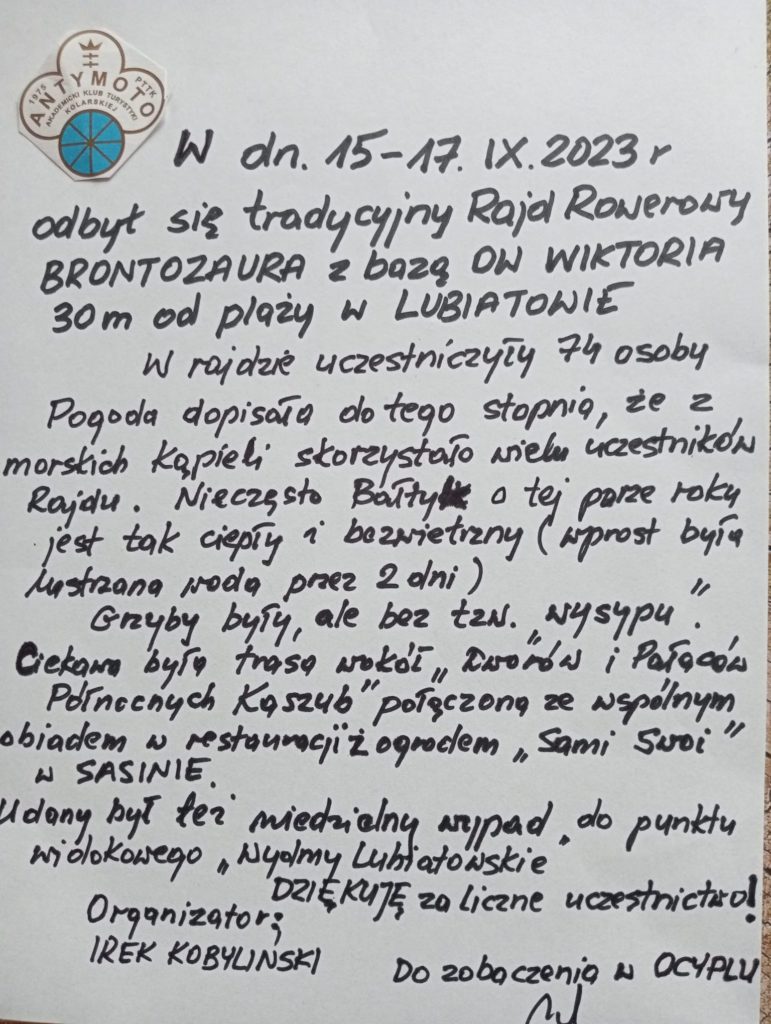 1975 ANTYMOTO PTTK
AKADEMICKI KLUB TURYSTYKI
KOLARSKIEJ
W dn. 15-17. IX. 2023 r
odbył się tradycyjny Rajd Rowerowy
BRONTOZAURA z bazą OW WIKTORIA
30m od plaży w LUBIATOWIE
W rajdzie uczestniczyły 74 osoby
Pogoda dopisała do tego stopnia, że z
morskich kąpieli skorzystało wielu uczestników
Rajdu. Nieczęsto Bałtyk o tej porze roku
jest tak ciepły i bezwietrzny (wprost była
lustrzana woda przez 2 dni)
Grzyby były, ale bez tzw. „wysypu".
Ciekawa była trasa wokół „Dworów i Pałaców
Północnych Kaszub" połączona ze wspólnym
obiadem w restauracji z ogrodem „Sami Swoi"
w SASINIE.
Udany był też niedzielny wypad do punktu
widokowego „Wydmy Lubiatowskie
DZIĘKUJĘ za liczne uczestnictwo!
Organizator;
IREK KOBYLIŃSKI
Do zobaczenia w OCYPLU